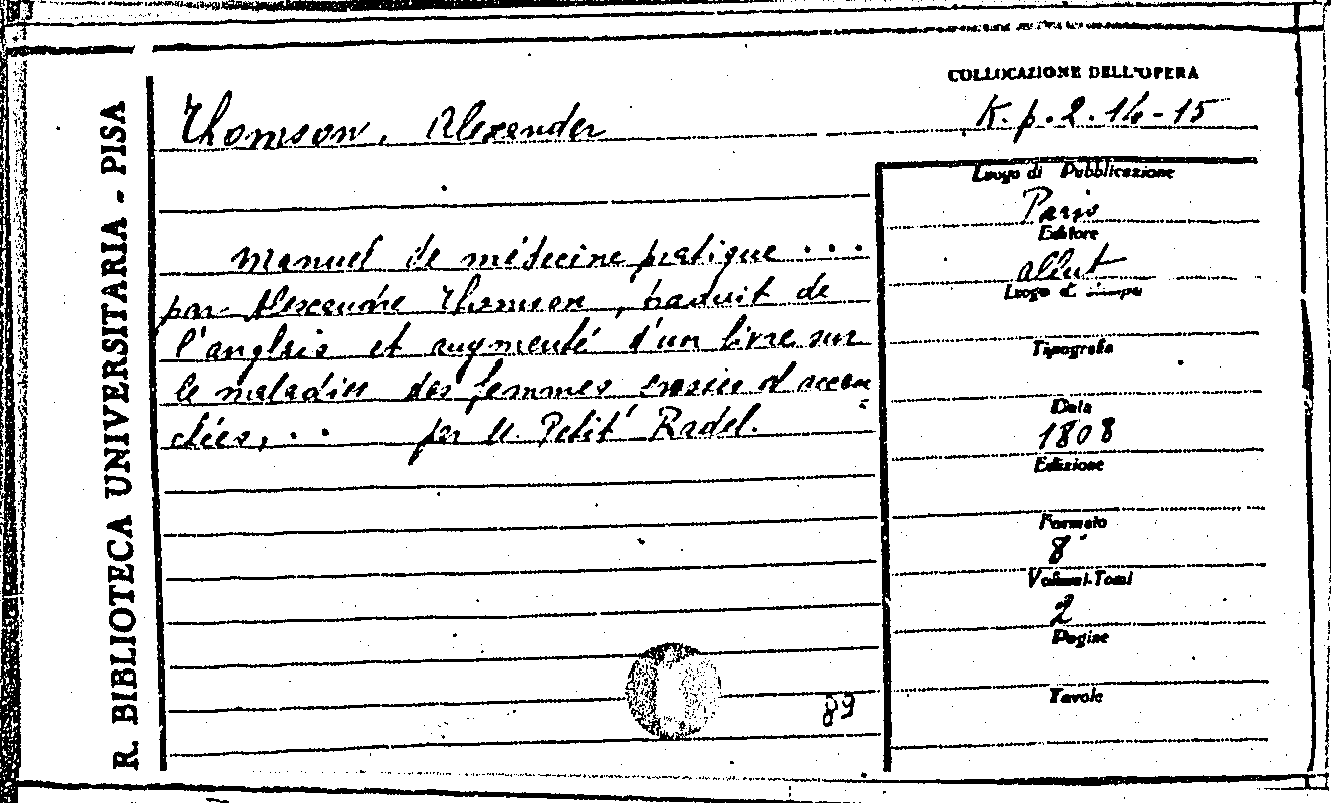 R. BIBLIOTECA UNIVERSITARIA - PISA
COLLOCAZIONE DELL'OPERA
K. p. 2. 14-15
Thomson, Alexander
Manuel de médecine pratique ...
par Alexandre Thomson, traduit de
l'anglais et augmenté d'un livre sur
le maladies des femmes
par M. Petit Radel.
89
Luogo di Pubblicazione
Paris
Editore
Allut
Luogo di stampa
Tipografia
Data
1808
Edizione
Formato
8°
Volumi-Tomi
2
Pagine
Tavole